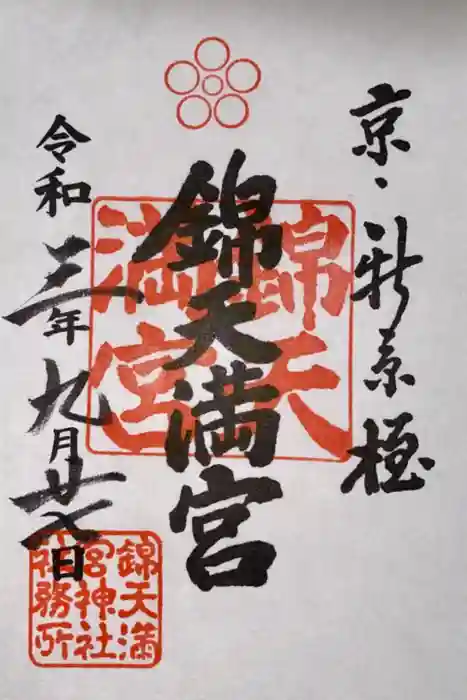 京・新京極
錦天満宮
令和三年九月廿日
錦天
満宮
錦天満
宮神社
社務所